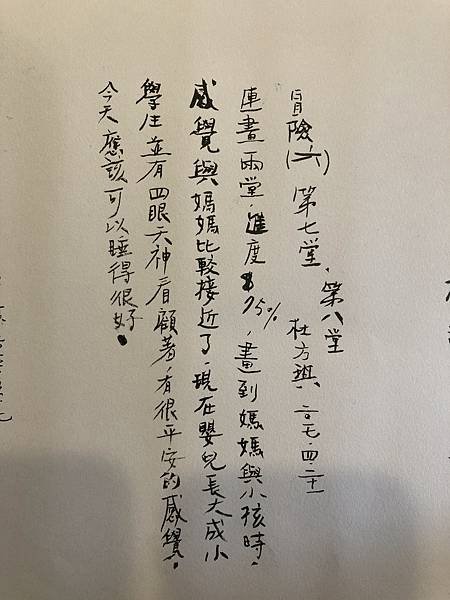 冒險(六) 第七堂、第八堂
杜方興 二〇一七.四.二十
連畫兩堂,進度75%,畫到媽媽與小孩時,
感覺與媽媽比較接近了,現在嬰兒長大成小
學生並有四眼天神看顧著,有很平安的感覺。
今天應該可以睡得很好。